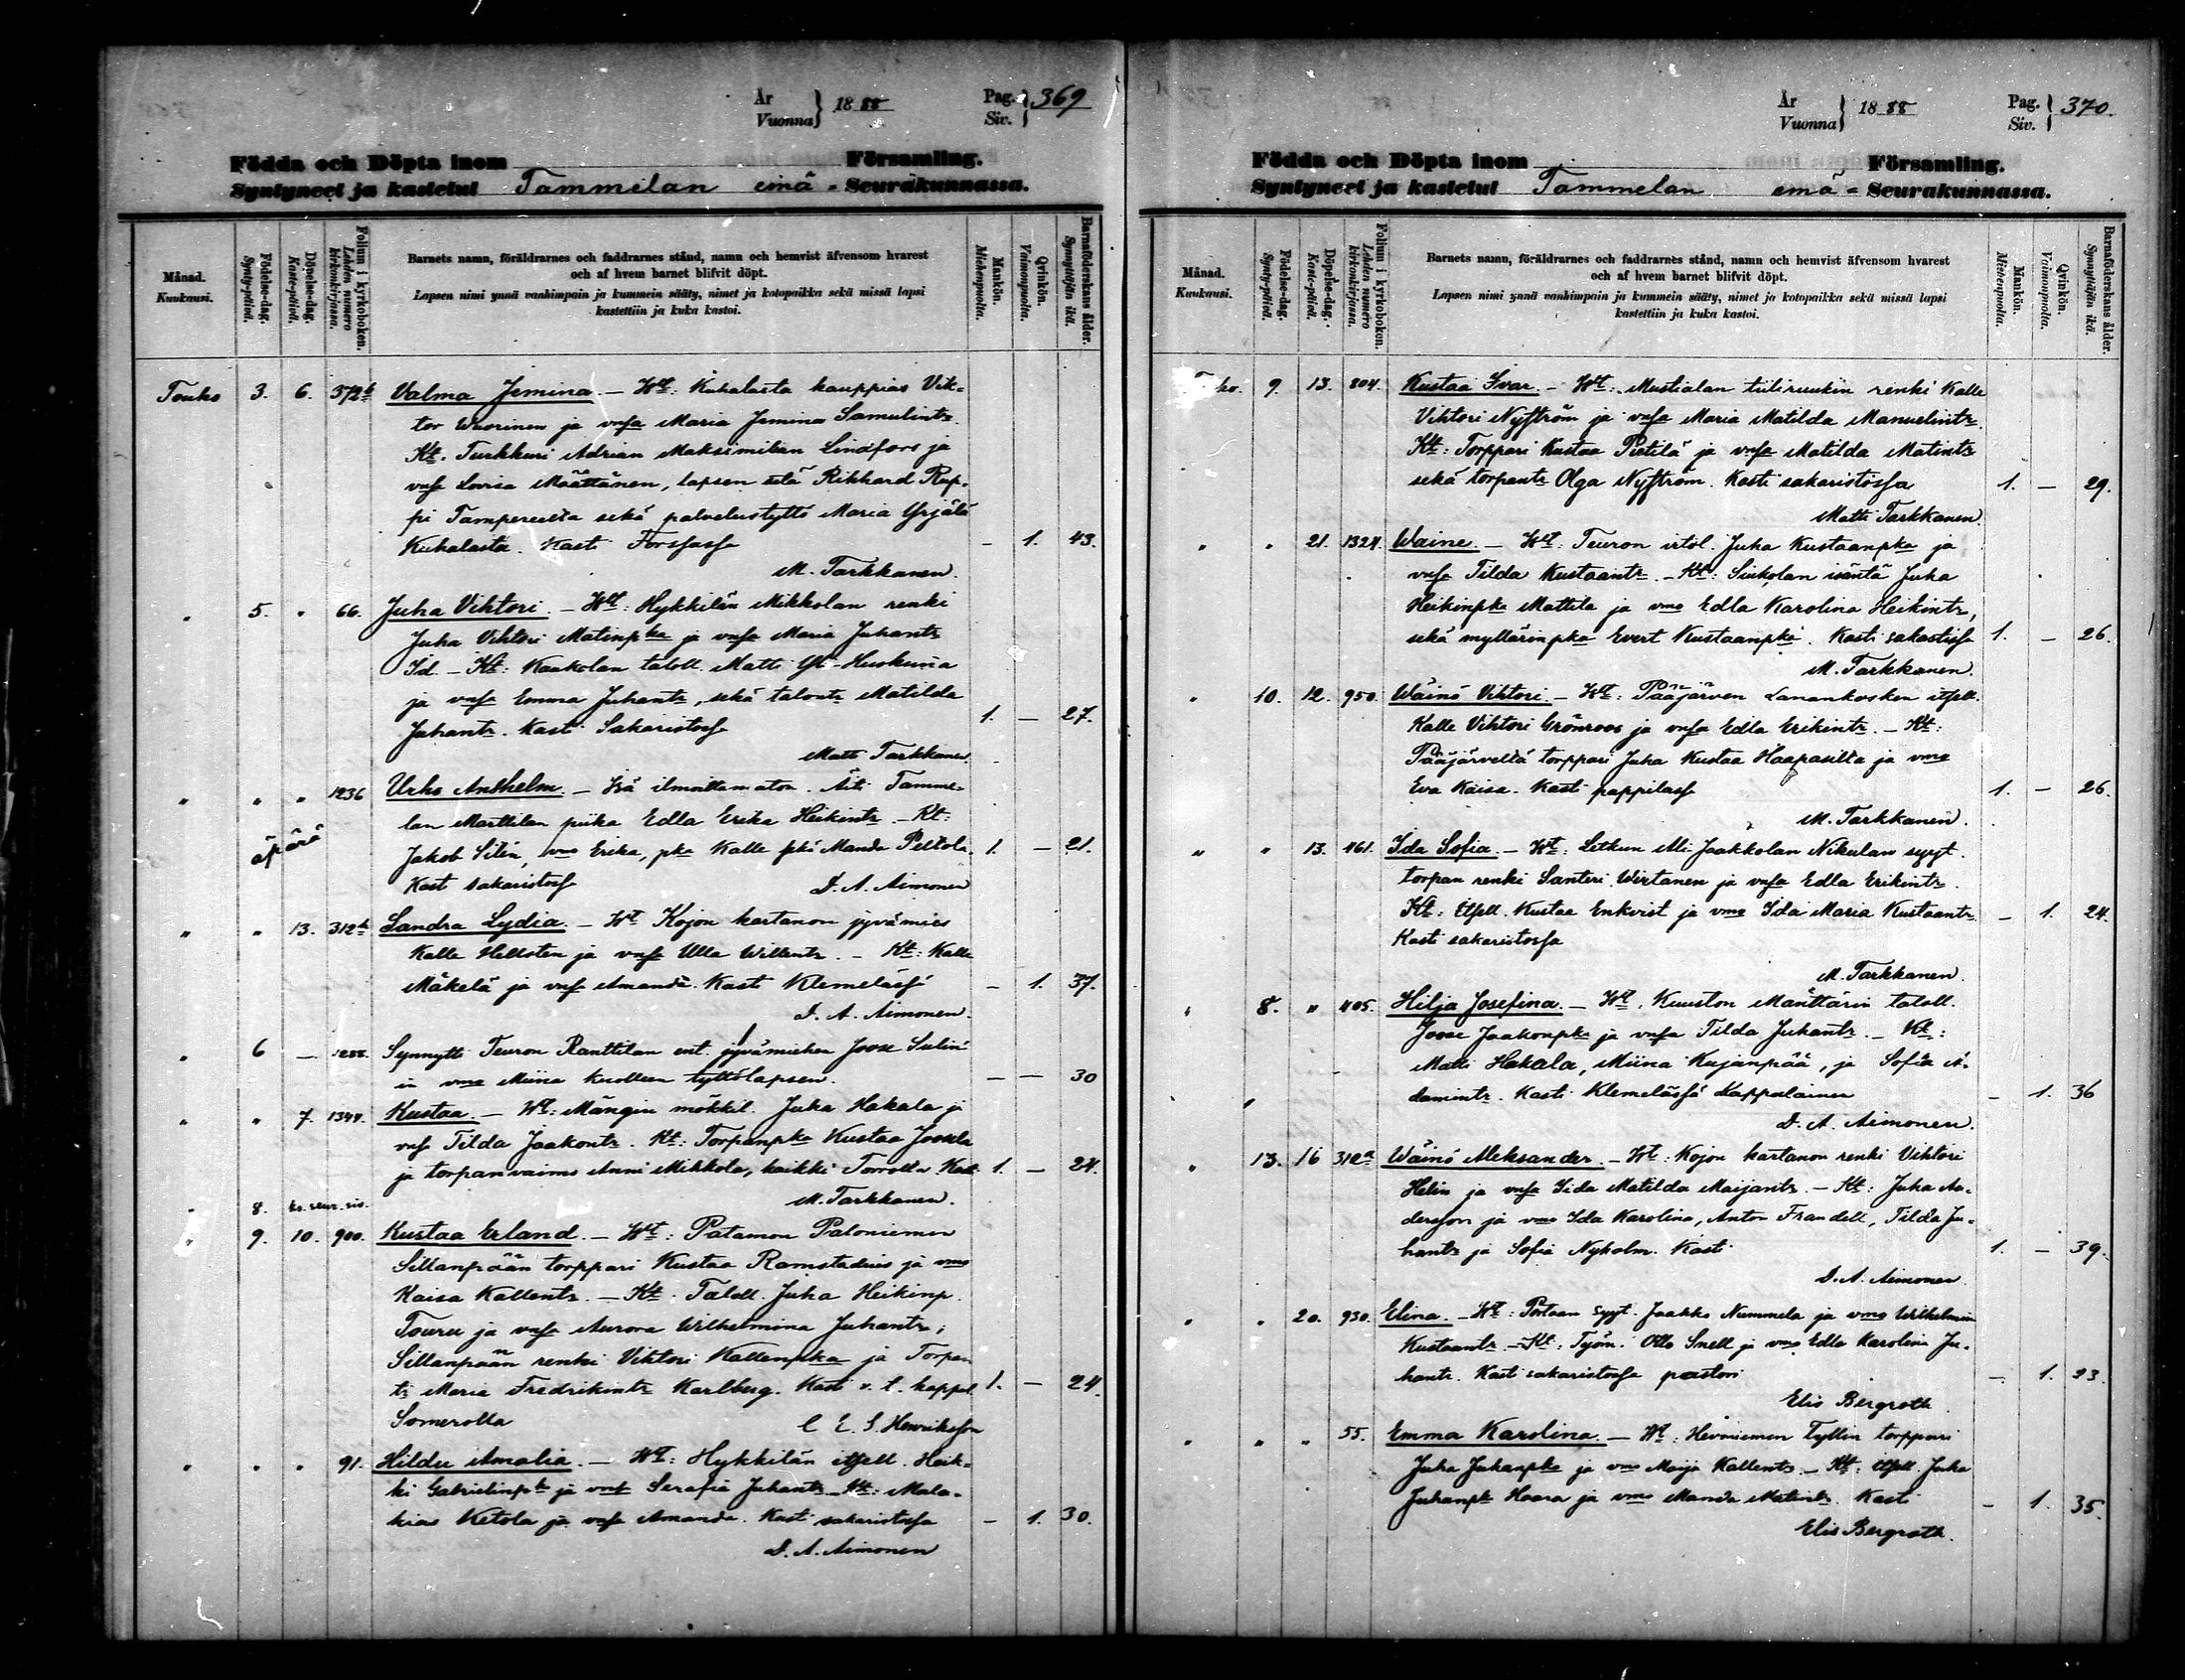 År
Vuonna } 1888
Pag.
Siv. } 369
Födda och Döpta inom Församling.
Syntyneet ja kastetut Tammelan emä- Seurakunnassa.
Månad.
Kuukausi.
Födelse-dag.
Synty-päivä.
Döpelse-dag.
Kaste-päivä.
Folium i kyrkoboken.
Lehden numero kirkonkirjassa.
Barnets namn, föräldrarnes och faddrarnes stånd, namn och hemvist äfvensom hvarest
och af hvem barnet blifvit döpt.
Lapsen nimi ynnä vanhimpain ja kummein sääty, nimet ja kotopaikka sekä missä lapsi
kastettiin ja kuka kastoi.
Mankön.
Miehenpuolta.
Qvinkön.
Vaimonpuolta.
Barnaföderskans ålder.
Synnyttäjän ikä.
Touko 3. 6. 372b Valma Jemina. — Wt: Kuhalasta kauppias Vik-
tor Wuorinen ja vmsa Maria Jemina Samulintr.
Kt. Turkkuri Adrian Maksimilian Lindfors ja
vmsa Lovisa Määttänen, lapsen setä Rikhard Rap-
pi Tampereelta sekä palvelustyttö Maria Yrjälä
Kuhalasta. Kasti Forssassa — 1. 43.
M. Tarkkanen.
" 5. " 66. Juha Vihtori. — Wt: Hykkilän Mikkolan renki
Juha Vihtori Matinpka ja vmsa Maria Juhantr
Id. — Kt: Kaukolan taloll. Matti Yli-Huskuma
ja vmsa Emma Juhantr, sekä talontr Matilda
Juhantr. Kasti Sakaristossa 1. — 27.
Matti Tarkkanen.
" " " 1236 Urho Anshelm. — Isä ilmoittamaton. Äiti Tamme-
lan Marttilan piika Edla Erika Heikintr. — Kt:
äpärä Jakob Silén, vmo Erika, pka Kalle ja Manda Peltola. 1. — 21.
Kast sakaristossa D. A. Aimonen
" " 13. 312b Sandra Lydia. — Wt Kojon kartanon jyvämies
Kalle Hellsten ja vmsa Ulla Willentr. — Kt: Kalle
Mäkelä ja vmsa Amanda. Kasti Klemelässä — 1. 37.
D. A. Aimonen.
" 6 — 1288. Synnytti Teuron Ranttilan ent. jyvämiehen Joose Sulin
in vmo Miina kuolleen tyttölapsen. — — 30
" " 7. 1344. Kustaa. — Wt: Mängin mökkil. Juha Hakala ja
vmsa Tilda Jaakontr. Kt: Torpanpka Kustaa Joosela
ja torpanvaimo Anni Mikkola, kaikki Torrolta Kast. 1. — 24.
M. Tarkkanen.
" 8. ks. seur. siv.
" 9. 10. 900. Kustaa Erland. — Wt: Patamon Paloniemen
Sillanpään torppari Kustaa Ramstadius ja vmo
Kaisa Kallentr. — Kt: Taloll. Juha Heikinp.
Touru ja vmsa Aurora Wilhelmina Juhantr,
Sillanpään renki Vihtori Kallenpka ja Torpan
tr Maria Fredrikintr Karlberg. Kasti v. t. kappal. 1. — 24.
Somerolla C. E. S. Henriksson
" " " 91. Hilda Amalia. — Wt: Hykkilän itsell. Heik-
ki Gabrielinpk ja vmsa Serafia Juhantr. Kt: Mala-
kias Ketola ja vmsa Amanda. Kasti sakaristossa — 1. 30.
D. A. Aimonen
År
Vuonna } 1888
Pag.
Siv. } 370.
Födda och Döpta inom Församling.
Syntyneet ja kastetut Tammelan emä- Seurakunnassa.
Månad.
Kuukausi.
Födelse-dag.
Synty-päivä.
Döpelse-dag.
Kaste-päivä.
Folium i kyrkoboken.
Lehden numero kirkonkirjassa.
Barnets namn, föräldrarnes och faddrarnes stånd, namn och hemvist äfvensom hvarest
och af hvem barnet blifvit döpt.
Lapsen nimi ynnä vanhimpain ja kummein sääty, nimet ja kotopaikka sekä missä lapsi
kastettiin ja kuka kastoi.
Mankön.
Miehenpuolta.
Qvinkön.
Vaimonpuolta.
Barnaföderskans ålder.
Synnyttäjän ikä.
Touko. 9. 13. 804. Kustaa Ivar. — Wt: Mustialan tiiliruukin renki Kalle
Vihtori Nyström ja vmsa Maria Matilda Manuelintr.
Kt: Torppari Kustaa Pietilä ja vmsa Matilda Matintr
sekä torpantr Olga Nyström. Kasti sakaristossa 1. — 29.
Matti Tarkkanen.
" " 21. 1324. Waine. — Wt: Teuron irtol. Juha Kustaanpka ja
vmsa Tilda Kustaantr. — Kt: Sukolan isäntä Juha
Heikinpka Mattila ja vmo Edla Karolina Heikintr,
sekä myllärinpka Evert Kustaanpka. Kasti sakastissa 1. — 26.
M. Tarkkanen.
" 10. 12. 950. Wäinö Vihtori. — Wt: Pääjärven Lanankosken itsell.
Kalle Vihtori Grönroos ja vmsa Edla Erikintr. — Kt:
Pääjärveltä torppari Juha Kustaa Haapasilta ja vmo
Eva Kaisa. Kasti pappilassa 1. — 26.
M. Tarkkanen.
" " 13. 461. Ida Sofia. — Wt: Letkun Ali-Jaakkolan Nikulan syyt.
torpan renki Santeri Wirtanen ja vmsa Edla Erikintr.
Kt: Itsell. Kustaa Enkvist ja vmo Ida Maria Kustaantr. — 1. 24.
Kasti sakaristossa
M. Tarkkanen.
" 8. " 405. Hilja Josefina. — Wt. Kuuston Mänttärin taloll.
Joose Jaakonpka ja vmsa Tilda Juhantr. — Kt:
Matti Hakala, Miina Kujanpää, ja Sofia A-
damintr. Kasti Klemelässä Kappalainen — 1. 36
D. A. Aimonen.
" 13. 16 312a Wäinö Aleksander. — Wt: Kojon kartanon renki Vihtori
Helin ja vmsa Iida Matilda Maijantr. — Kt: Juha An-
dersson ja vmo Ida Karolina, Anton Frandell, Tilda Ju-
hantr ja Sofia Nyholm. Kasti 1. — 39.
D. A. Aimonen
" " 20. 930. Elina. — Wt: Portaan syyt. Jaakko Nummela ja vmo Wilhelmina
Kustaantr. — Kt: Työm. Otto Snell ja vmo Edla Karolina Ju-
hantr. Kasti sakaristossa pastori — 1. 23.
Elis Bergroth.
" " " 55. Emma Karolina. — Wt: Hevoniemen Tyllin torppari
Juha Juhanpka ja vmo Maija Kallentr. — Kt: itsell. Juha
Juhanpk Haara ja vmo Manda Matintr. Kasti — 1. 35.
Elis Bergroth.